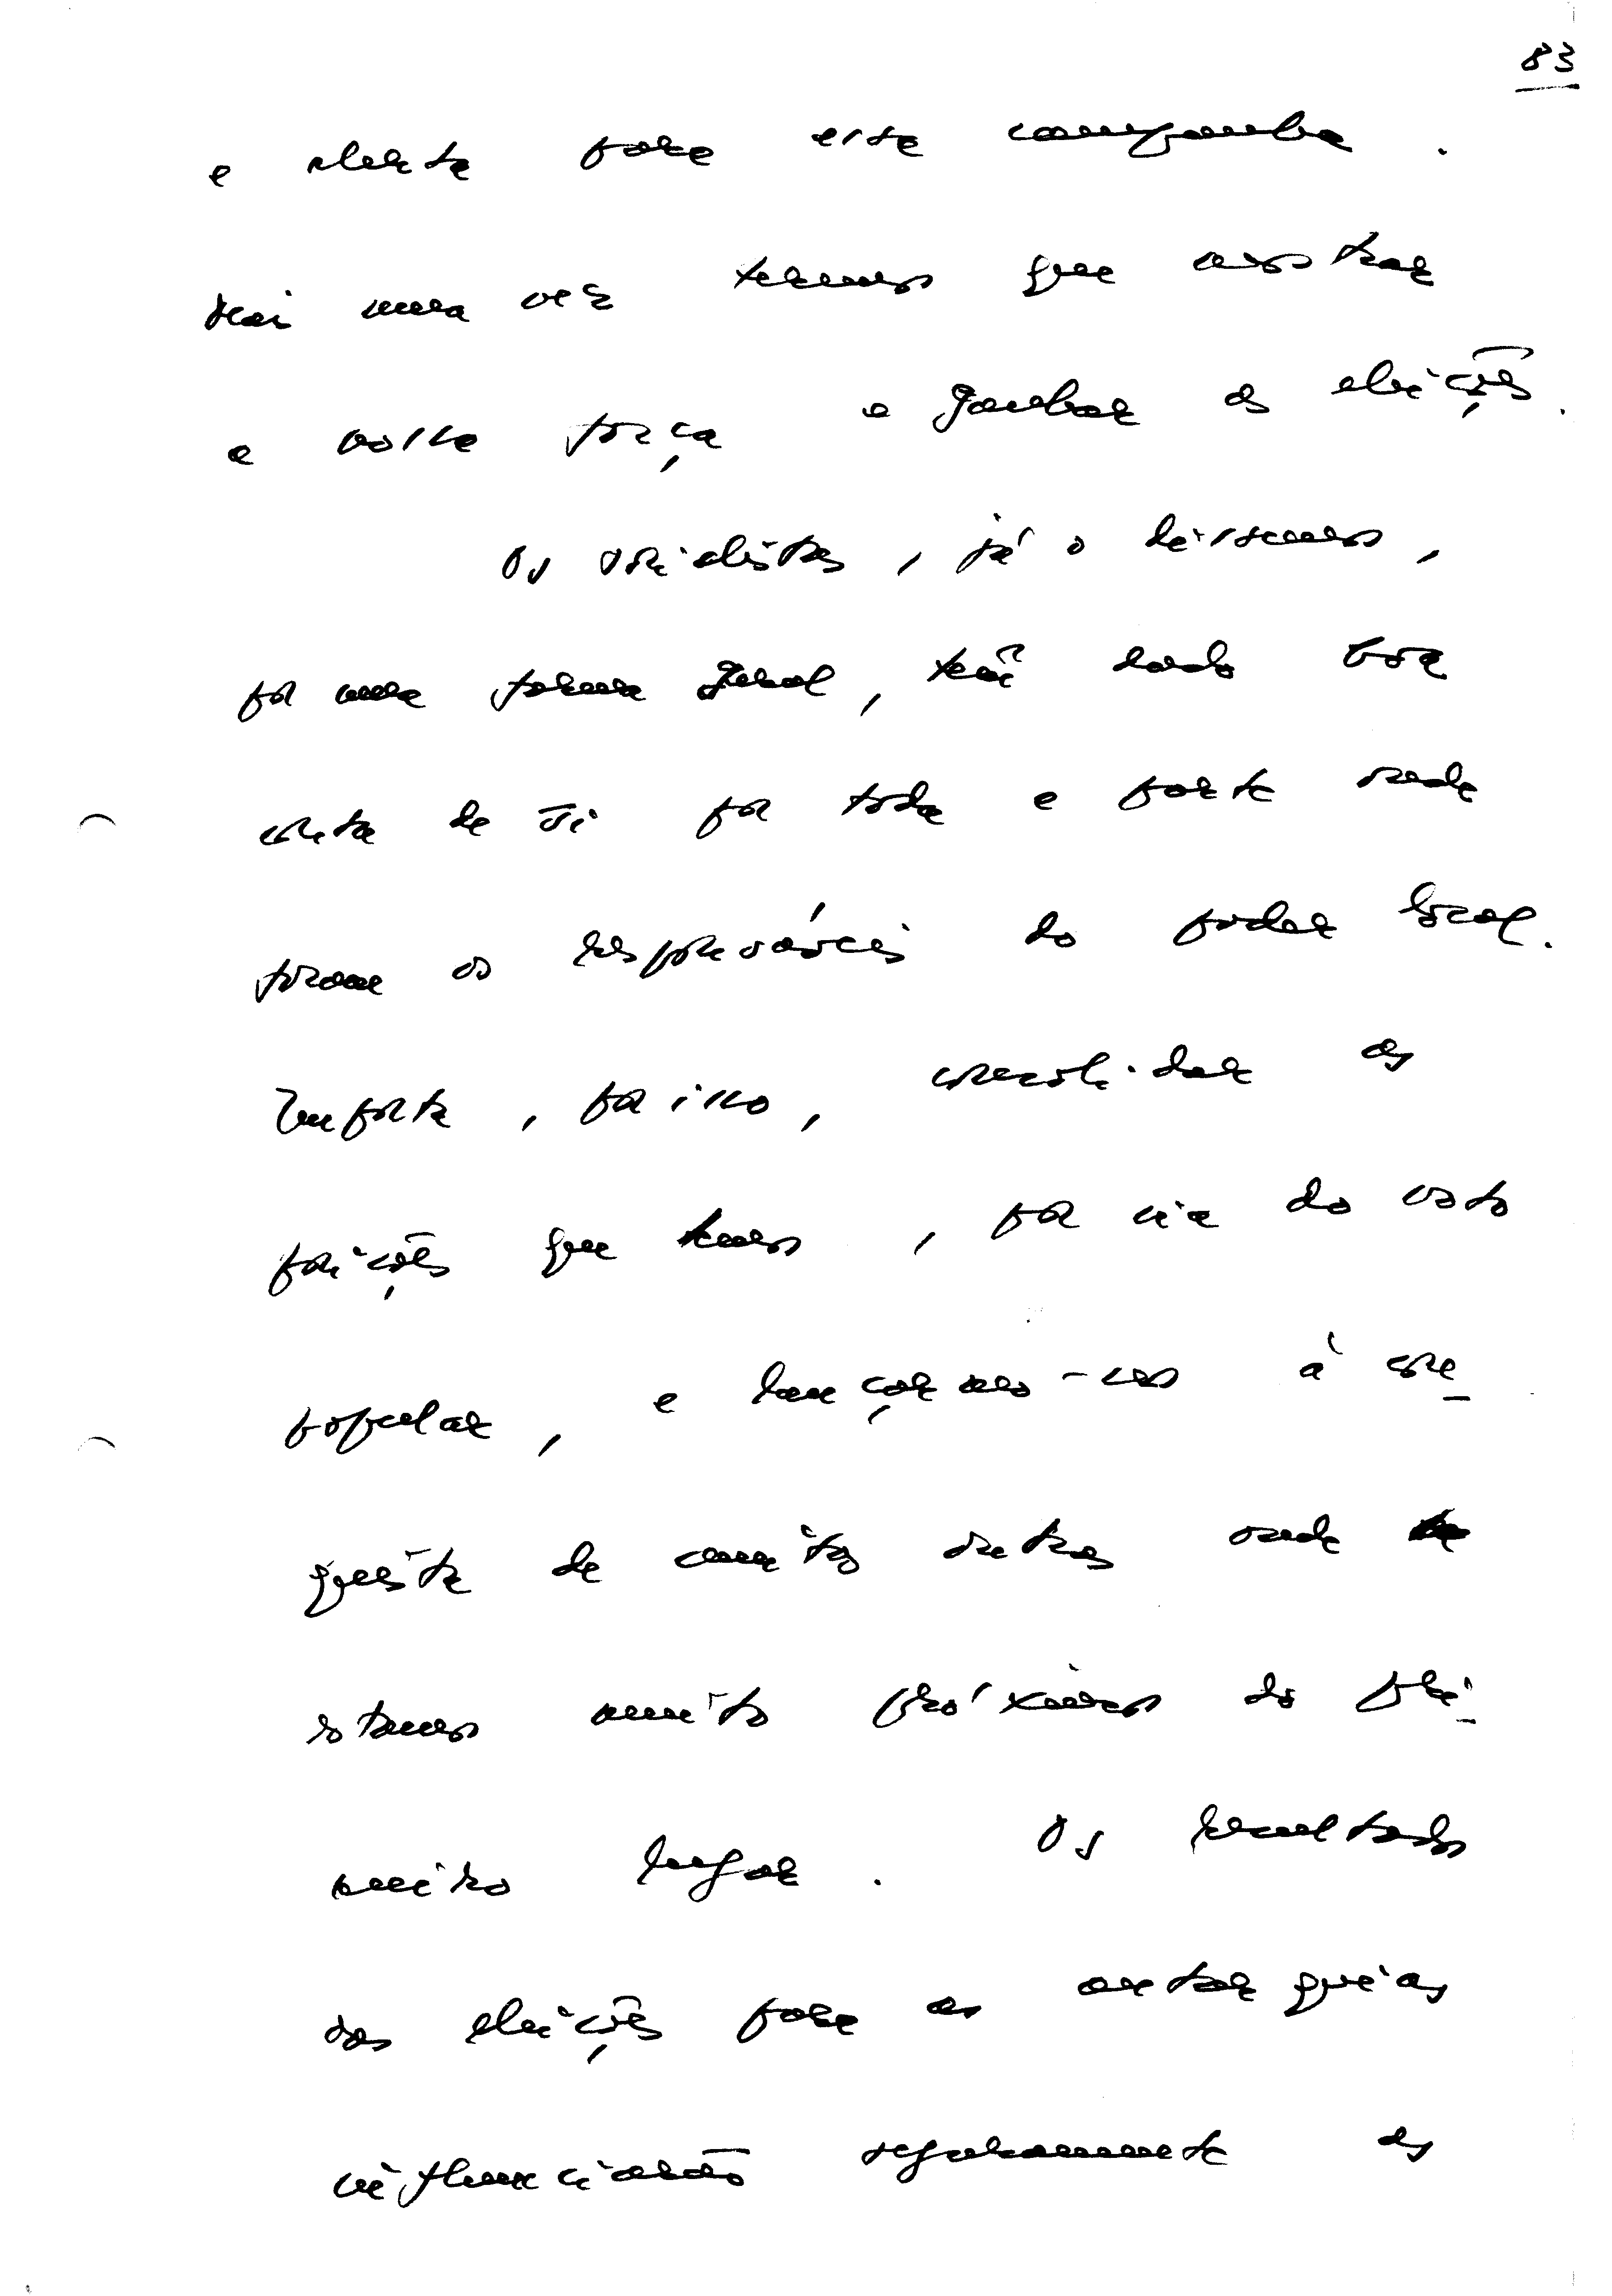 83
e alerta para esta campanha.
Mais uma vez teremos que mostrar
a nossa força e ganhar as eleições.
Os socialistas, já o dissemos,
por uma forma geral, têm dado boa
conta de si por toda a parte onde
foram os responsáveis do poder local.
Importa, por isso, consolidar as
posições que temos, por via do voto
popular, e lançarmo-nos à con-
quista de muitas outras onde
estamos muito próximos do pri-
meiro lugar. Os resultados
das eleições para as autarquias
influenciarão seguramente as